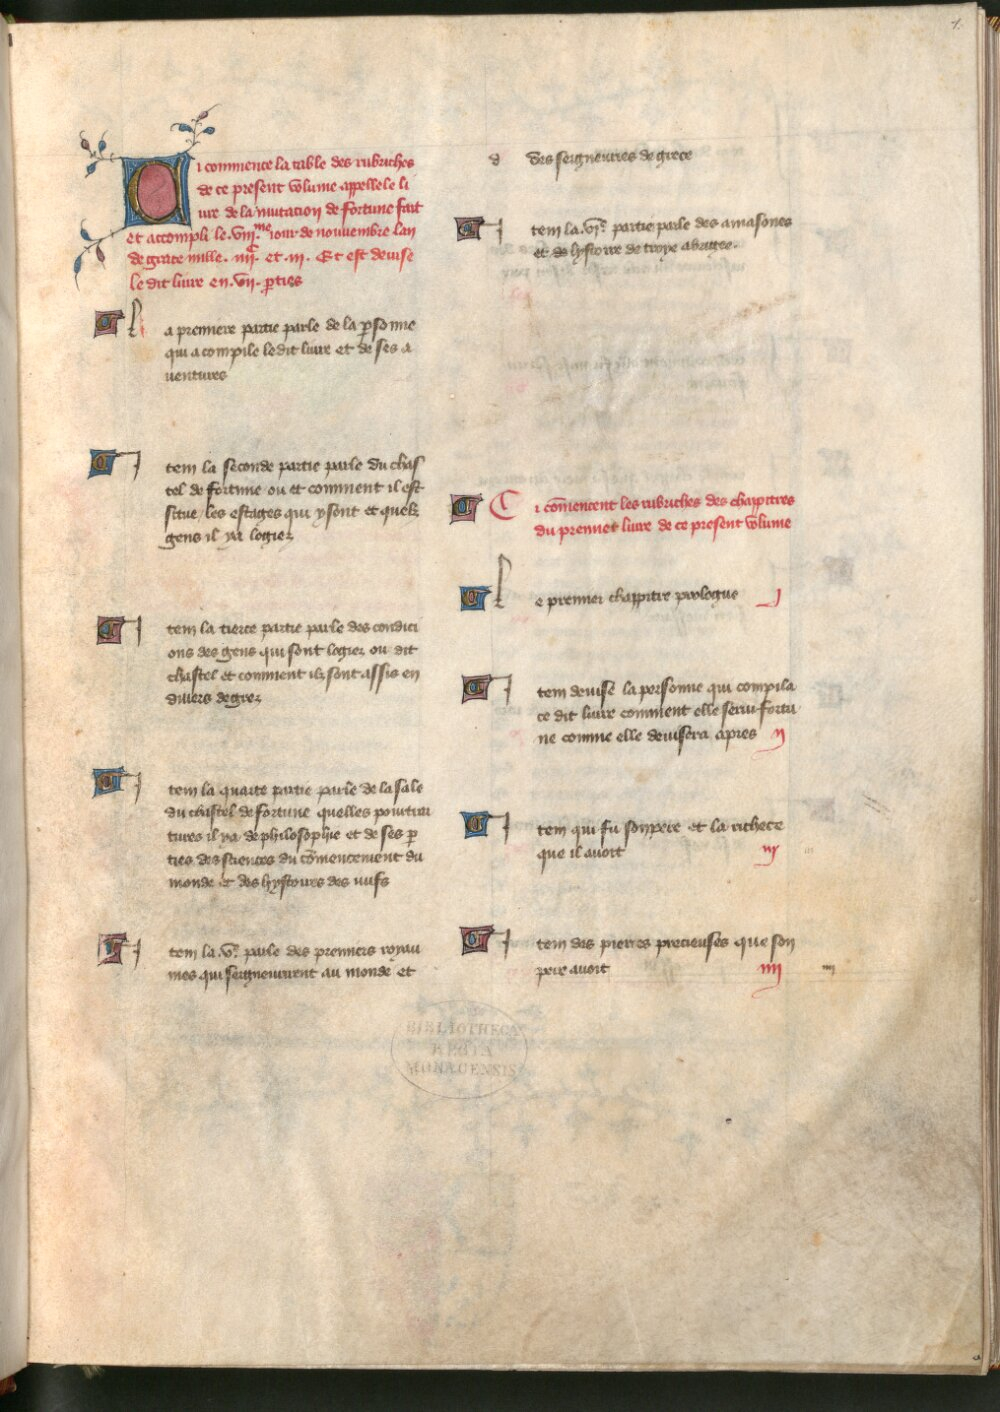 Ci commence la table des rubriches
de ce present volume appelle le li
ure de la mutacion de fortune fait
et accompli le .viii.me iour de nouuembre lan
de grace mille. iiiic. et .iii. Et est deuise
le dit liure en .vii. pties
La premiere partie parle de la psonne
qui a compile le dit liure et de ses a
uentures
Item la seconde partie parle du chas
tel de fortune ou et comment il est
situe / les estages qui y sont et quelz
gens il y a logiez
Item la tierce partie parle des condici
ons des gens qui sont logiez ou dit
chastel et comment ilz sont assis en
diuers degrez
Item la quarte partie parle de la sale
du chastel de fortune quelles pourtrai
tures il y a / de philosophie et de ses p
ties des sciences du cōmencement du
monde et des hystoires des iuifs
Item la .ve. parle des premiers royau
mes qui seigneurirent au monde et
d des seigneuries de grece
Item la .vie. partie parle des amasones
et de lystoire de troye abregee.
Ci cōmencent les rubriches des chappitres
du premier liure de ce present volume
Le premier chappitre prologue j
Item deuise la personne qui compila
ce dit liure comment elle serui fortu
ne comme elle deuisera apres ij
Item qui fu son pere et la richece
que il auoit iij
Item des pierres precieuses que son
pere auoit iiij
BIBLIOTHECA
REGIA
MONACENSIS